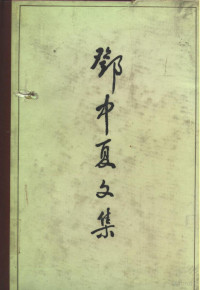 鄧中夏文集